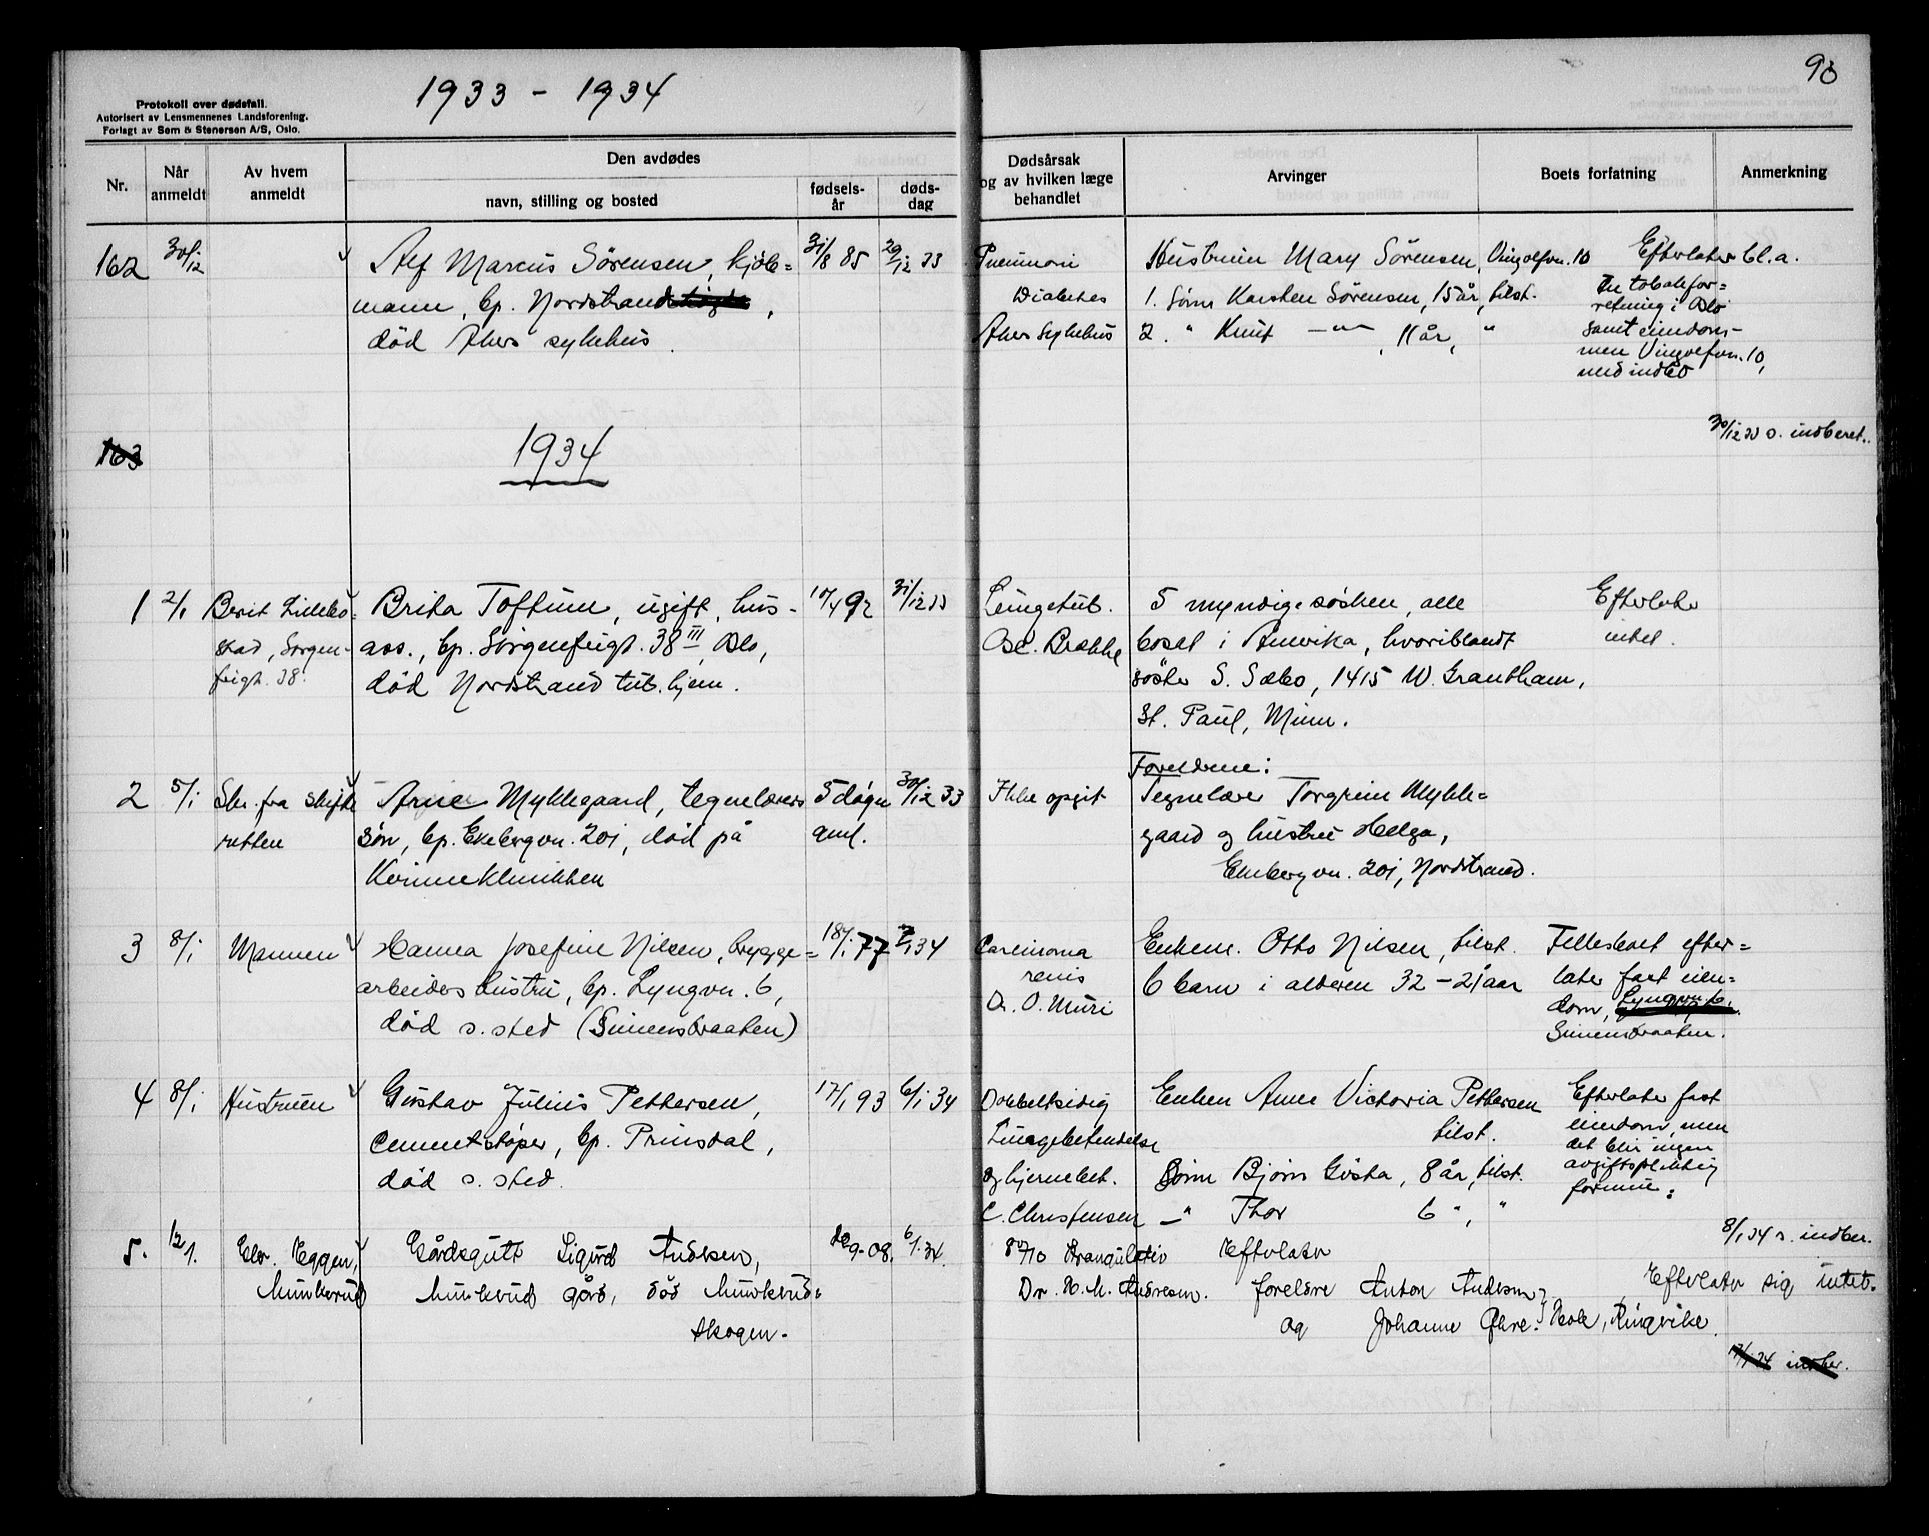 1933 - 1934
93
Protokoll over dødsfall.
Autorisert av Lensmennenes Landsforening.
Forlagt av Sem & Stenersen A/S, Oslo.
Nr.
Når anmeldt
Av hvem anmeldt
Den avdødes
navn, stilling og bosted
fødsels-år
døds-dag
Dødsårsak og av hvilken læge behandlet
Arvinger
Boets forfatning
Anmerkning
162 30/12 Alf Marcus Sørensen, kjöb= 31/8 85 29/12 33
mann, bp. Nordstrand,
död Akers sykehus.
Pneumoni
Diabetes
Aker Sykehus
Hustruen Mary Sörensen, Vingolfvn. 10
1. Sönn Karsten Sörensen, 15 år, tilst.
2. " Knut —"— , 11 år, "
Efterlater bl.a.
En tobakfor=
retning i Oslo
samt eiendom-
men Vingolfvn. 10,
med indbo
30/12 33 s. indberet.
163
1934
1 2/1 Berit Lillebo= Brita Toftum, ugift, hus- 10/4 92 31/12 33
stad, Sorgen- ass., bp. Sorgenfrigt. 38 III, Oslo,
frigt. 38. död Nordstrand tub. hjem.
Lungetub.
Osc. Brække
5 myndige søsken, alle
bosat i Amerika, hvoriblandt
söster S. Sæbo, 1415 W. Grantham,
St. Paul, Minn.
Efterlater
intet.
2 5/1 Skr. fra skifte Arne Myklegaard, tegnelærers 5 døgn 30/12 33
retten sön, bp. Ekebergvn. 201, död på gml.
Kvinneklinikken
Ikke opgit
Foreldrene:
Tegnelærer Torgrim Mykle=
gaard og hustru Helga,
Ekebergvn. 201, Nordstrand.
3 8/1 Mannen Hanna Josefine Nilsen, brygge= 18/1 77 7/1 34
arbeiders hustru, bp. Lyngvn. 6,
död s. sted (Simensbraaten)
Carcinoma
renis
O. Muri
Enkem. Otto Nilsen, tilst.
6 barn i alderen 32 - 21 aar
Fellesboet efter=
later fast eien-
dom, Lyngvn 6,
Simensbraaten.
4 8/1 Hustruen Gustav Julius Pettersen, 17/1 93 6/1 34
Cementstøper, bp. Prinsdal,
död s. sted.
Dobbeltsidig
Lungebetendelse
og hjernebet.
C. Christensen
Enken Anne Victoria Pettersen
tilst.
Sönn Björn Gösta, 8 år, tilst.
—" Thor 6 ", "
Efterlater fast
eiendom, men
det blir ingen
avgiftspliktig
formue.
8/1 34 s. indber.
5. 12/1. Elv. Eggen, Gårdsgutt Sigurd Andersen, 9-08. 6/1. 34.
Munkerud Munkerud gård, död Munkerud=
skogen.
Strangulatio
Dr. H. M. Andresen.
Efterlater
foreldre Anton Andersen
og Johanne Hole, Ringerike.
Efterlater sig intet.
17/1 34 indber.